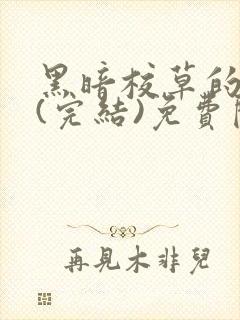 黑暗校草的
(完結)免費
再見木非兒